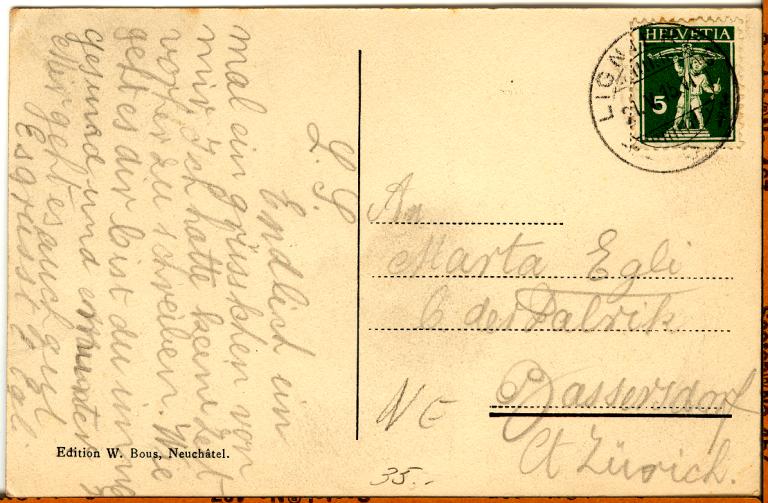 L. S.
Endlich ein
mal ein grüsschen von
mir. Ich hatte keine Zeit
vorher zu schreiben. Wie
geht es dir bist du immer
gesund und munter
Mir geht es auch gut
Es grüsst Egli.
Edition W. Bous, Neuchâtel.
HELVETIA
5
LIGN
An
Marta Egli
b der Fabrik
Bassersdorf
Ct Zürich.
NE
35.-